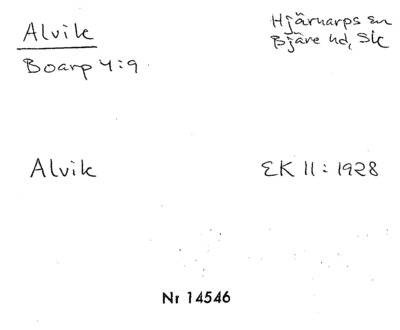 Alvik
Boarp 4:9
Hjärnarps sn
Bjäre hd, Sk
Alvik
EK II: 1928
Nr 14546